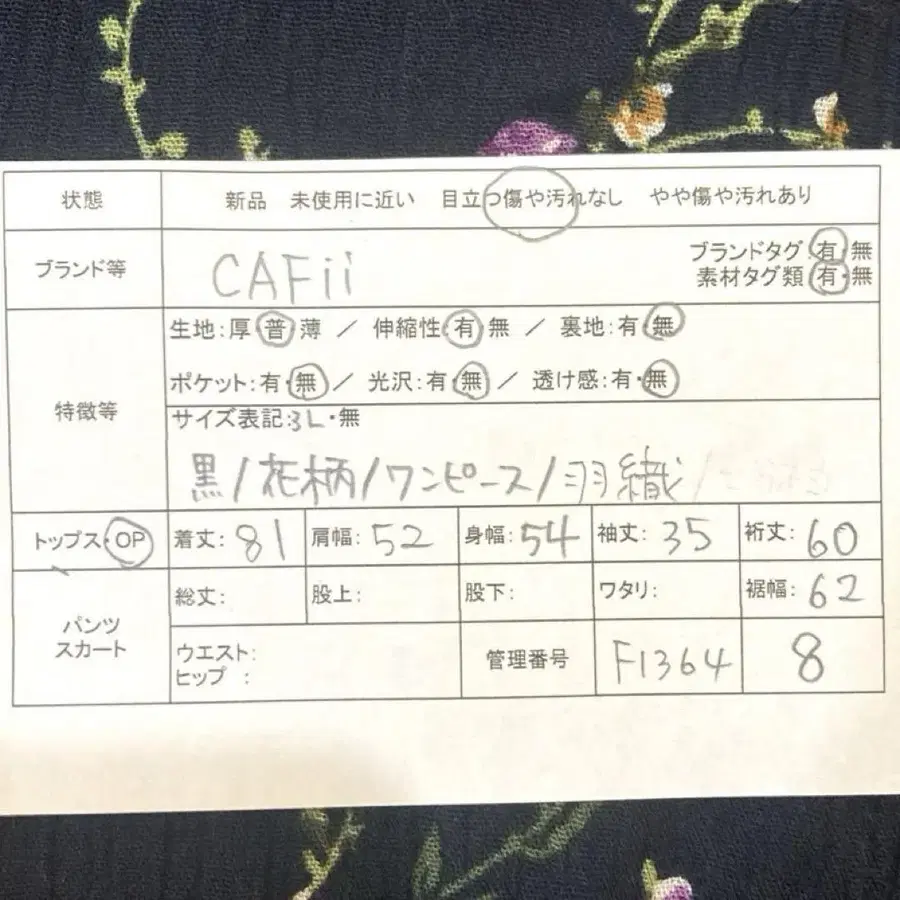 状態 新品 未使用に近い 目立つ傷や汚れなし やや傷や汚れあり
ブランド等 CAFii ブランドタグ:有・無
素材タグ類:有・無
特徴等
生地:厚・普・薄 / 伸縮性:有・無 / 裏地:有・無
ポケット:有・無 / 光沢:有・無 / 透け感:有・無
サイズ表記:3L・無
黒/花柄/ワンピース/羽織
トップス・OP 着丈:81 肩幅:52 身幅:54 袖丈:35 裄丈:60
パンツ
スカート
総丈: 股上: 股下: ワタリ: 裾幅:62
ウエスト:
ヒップ :
管理番号 F1364 8